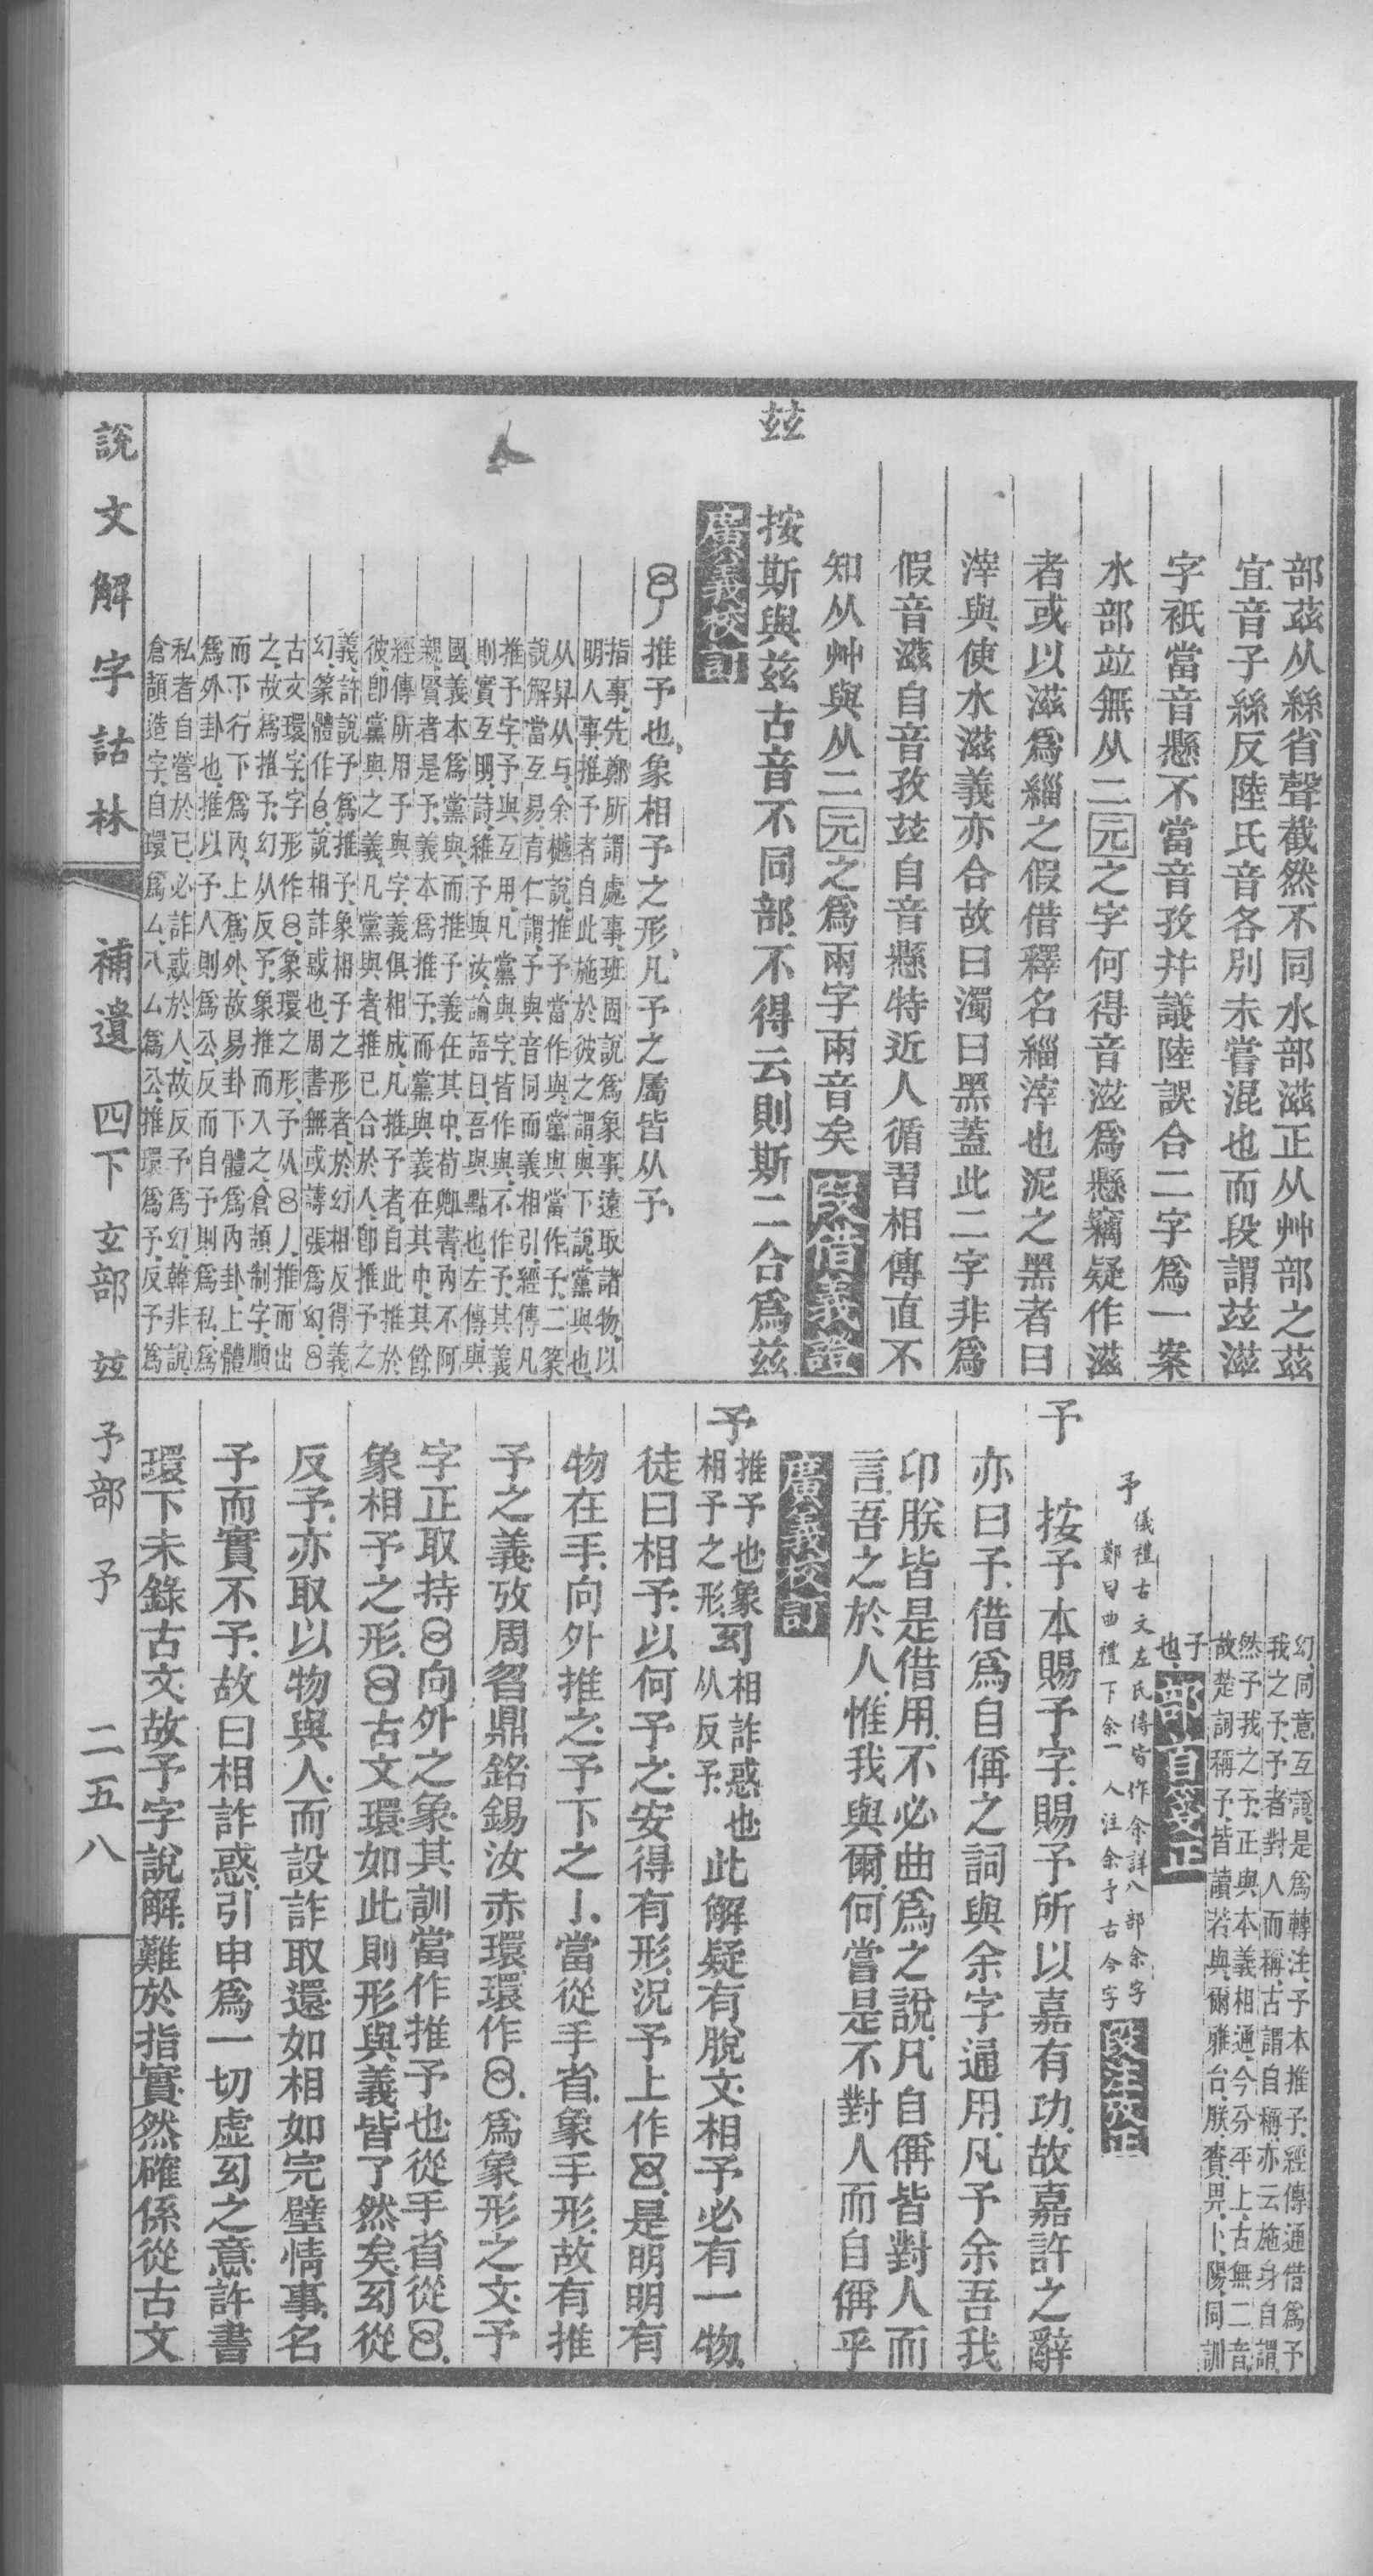 部茲从絲省聲截然不同水部滋正从艸部之茲
宜音子絲反陸氏音各別未嘗混也而段謂玆滋
字衹當音懸不當音孜幷議陸誤合二字爲一案
水部竝無从二元之字何得音滋爲懸竊疑作滋
者或以滋爲緇之假借釋名緇滓也泥之黑者曰
滓與使水滋義亦合故曰濁曰黑蓋此二字非爲
假音滋自音孜玆自音懸特近人循習相傳直不
知从艸與从二元之爲兩字兩音矣 段借義證
玆
按斯與茲古音不同部、不得云則斯二合爲茲
廣義校訂
推予也、象相予之形、凡予之屬皆从予、
指事、先鄭所謂處事、班固說爲象事、遠取諸物、以
明人事、推予者自此施於彼之謂、與下說、黨與也
从舁从与、余樾說、推予當作與、黨與當作予、二篆
說解當互易、育仁謂、予與音同而義相引、經傳凡
推予字、予與互用、凡黨與字、皆作與、不作予、其義
則實互明、詩、維予與汝、論語曰、吾與點也、左傳、與
國、義本爲黨與、而推予義在其中、荀卿書、內不阿
親、賢者是予、義本爲推予、而黨與義在其中、其餘
經傳所用予與字、義俱相成、凡推予者、自此推於
彼、卽黨與之義、凡黨與者、推已合於人、卽推予之
義、許說予爲推予、象相予之形者、於幻相反得義
幻、篆體作、說相詐惑也、周書無或譸張爲幻、
古文環字、字形作、象環之形、予从人、推而出
之、故爲推予、幻从反予、象推而入之、倉頡制字、順
而下行、下爲內、上爲外、故易卦下體爲內卦、上體
爲外卦也、推以予人則爲公、反而自予則爲私、爲
私者自營於已、必詐惑於人、故反予爲幻、韓非說
倉頡造字、自環爲厶、八厶爲公、推環爲予、反予爲
幻、同意互證、是爲轉注、予本推予、經傳通借爲予
我之予、予者對人而稱、古謂自稱、亦云施身自謂、
然予我之予、正與本義相通、今分平上、古無二音、
故楚詞稱予、皆讀若與、爾雅台、朕、賚、畀、卜、陽、同訓
予也、部首箋正
予儀禮古文左氏傳皆作余詳八部余字
鄭曰曲禮下余一人注余予古今字 段注攷正
予
按予本賜予字、賜予所以嘉有功、故嘉許之辭
亦曰予、借爲自偁之詞與余字通用、凡予余吾我
卬朕皆是借用、不必曲爲之說、凡自偁皆對人而
言、吾之於人、惟我與爾、何嘗是不對人而自偁乎
廣義校訂
予推予也、象相予之形、幻相詐惑也、从反予、此解疑有脫文、相予必有一物、
徒曰相予、以何予之、安得有形、況予上作、是明明有
物在手、向外推之、予下之亅、當從手省、象手形、故有推
予之義、攷周召鼎銘錫汝赤環、環作、爲象形之文、予
字正取持向外之象、其訓當作推予也、從手省、從、
象相予之形、古文環、如此則形與義皆了然矣、幻從
反予、亦取以物與人、而設詐取還、如相如完璧情事、名
予而實不予、故曰相詐惑、引申爲一切虛幻之意、許書
環下未錄古文、故予字說解、難於指實、然確係從古文
說文解字詁林 補遺 四下 玄部 玆 予部 予 二五八